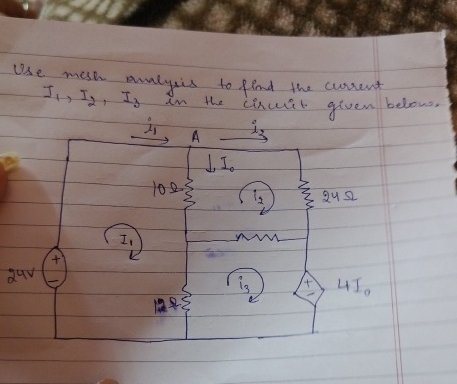 Use mesh analysis to find the current
I₁, I₂, I₃ in the circuit given below.
i₁ A i₂
↓ I₀
10Ω i₂ 24Ω
I₁
24V + − i₃ + − 4I₀
12Ω